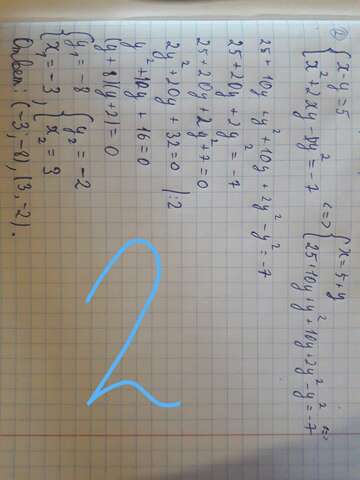 ② { x-y=5
x²+2xy-y²=-7 <=> { x=5+y
25+10y+y²+10y+2y²-y²=-7 <=>
25+10y+y²+10y+2y²-y²=-7
25+20y+2y²=-7
25+20y+2y²+7=0
2y²+20y+32=0 |:2
y²+10y+16=0
(y+8)(y+2)=0
{ y₁=-8
x₁=-3 , { y₂=-2
x₂=3
Ответ: (-3;-8), (3,-2).
2